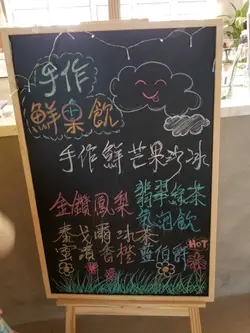 手作
鮮果飲
手作鮮芒果沙冰
金鑽鳳梨
翡翠綠茶
氣泡飲
泰戈爾冰茶
蜜漬香橙
藍伯爵
HOT